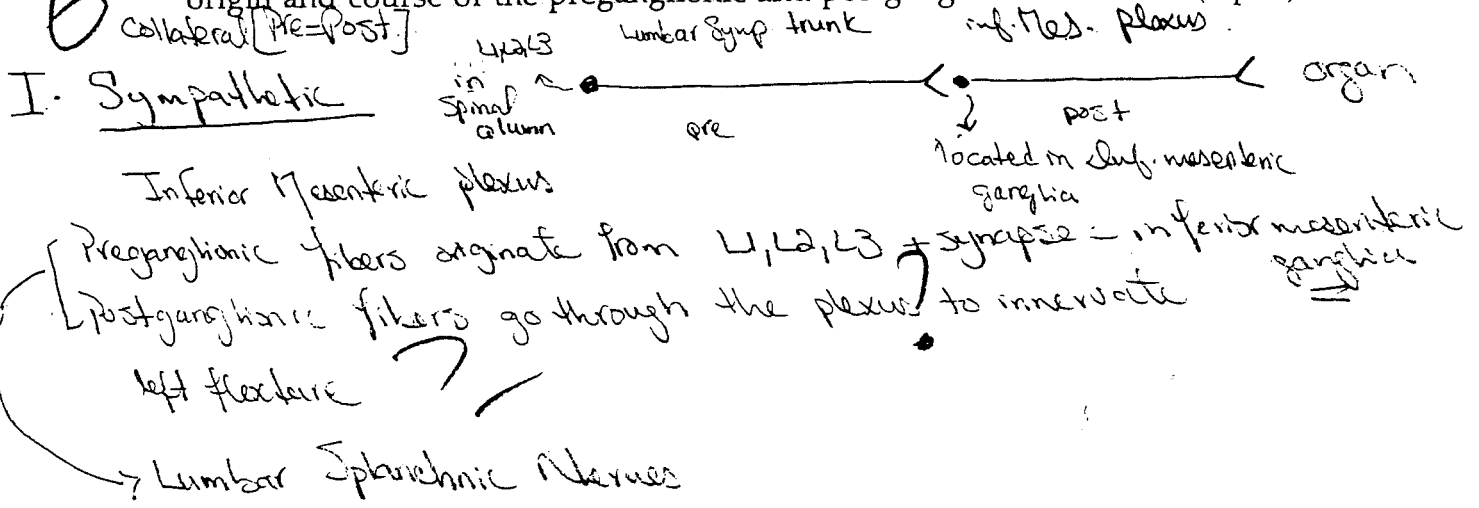 origin and course of the preganglionic and postganglionic
Collateral [Pre=Post] Lumbar Symp trunk inf. Mes. plexus.
L1,L2,L3
I. Sympathetic in spinal column organ
pre post
located in Inf. mesenteric ganglia
Inferior Mesenteric plexus
Preganglionic fibers originate from L1, L2, L3 + synapse = inferior mesenteric ganglia
Postganglionic fibers go through the plexus? to innervate
left flexture ?
→ Lumbar Splanchnic Nerves